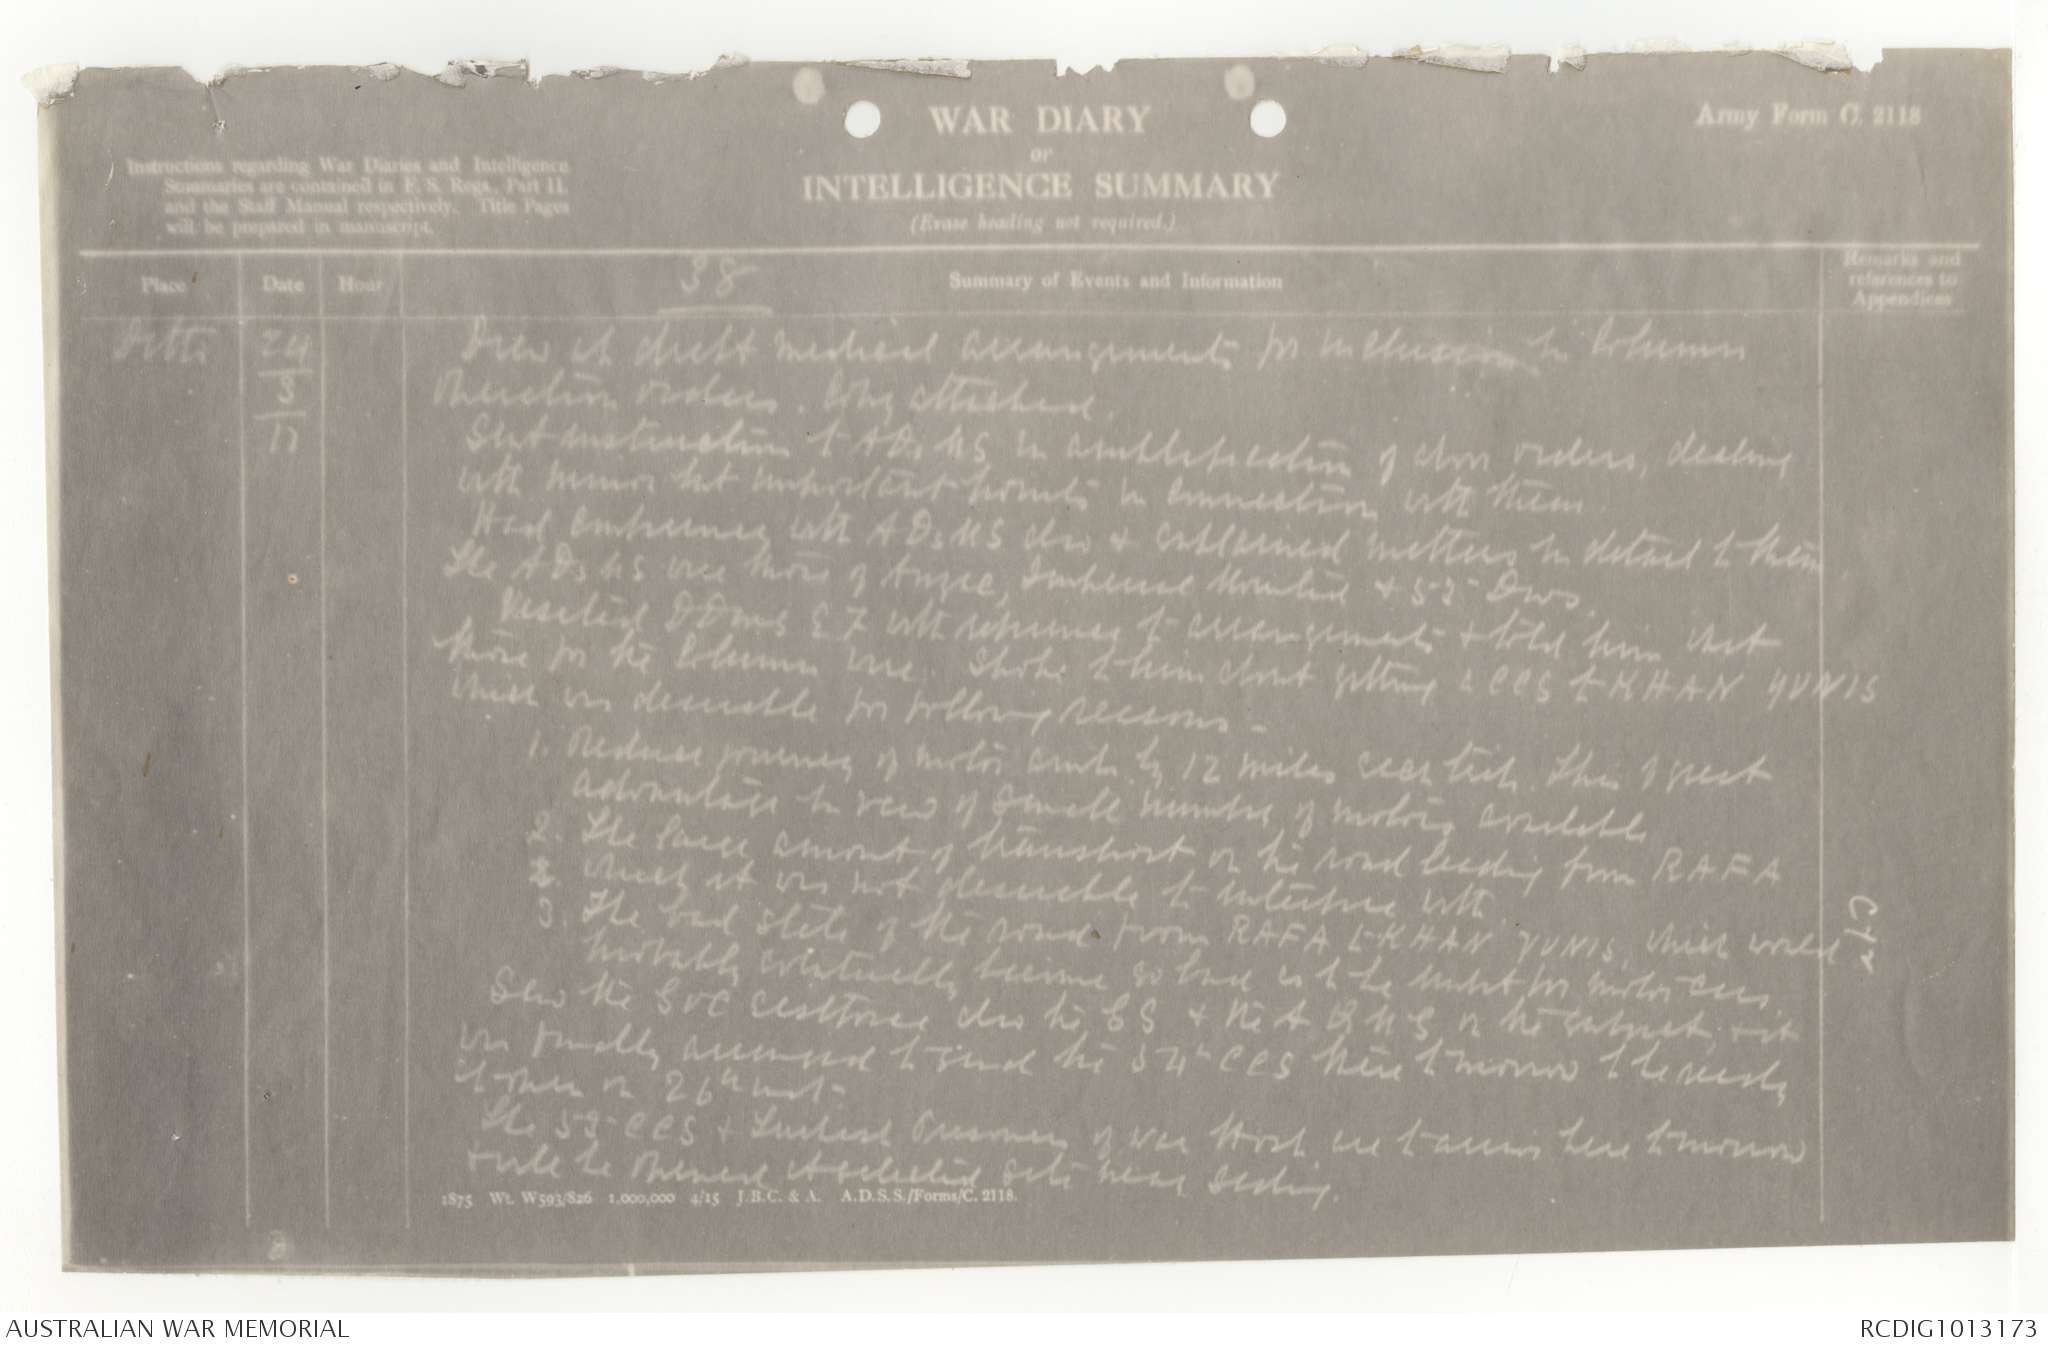 WAR DIARY
or
INTELLIGENCE SUMMARY
(Erase heading not required.)
Army Form C. 2118
Instructions regarding War Diaries and Intelligence
Summaries are contained in F. S. Regs., Part II.
and the Staff Manual respectively. Title Pages
will be prepared in manuscript.
Place
Date
Hour
38
Summary of Events and Information
Remarks and
references to
Appendices
Ditto
24
3
17
Drew up draft medical arrangements for inclusion in Column
Operation orders. Copy attached.
Sent instructions to ADsMS in amplification of above orders, dealing
with minor but important points in connection with them.
Had conference with ADsMS also & explained matters in detail to them.
The ADsMS were those of Anzac, Imperial Mounted & 53rd Divs.
Visited DDMS EF with reference to arrangements & told him what
those for the Column were. Spoke to him about getting a CCS to KHAN YUNIS
which was desirable for following reasons -
1. Reduce journey of motor ambs. by 12 miles each trip. This of great
advantage in view of small number of motors available
2. The large amount of transport on the road leading from RAFA
which it was not desirable to interfere with.
3. The bad state of the road from RAFA to KHAN YUNIS, which would
probably eventually become so bad as to be unfit for motor cars.
Saw the GOC Eastforce also the GS & the A QMG on the subject, & it
was finally arranged to send the 54th CCS there tomorrow to be ready
to open on 26th inst.
The 53rd CCS & Turkish Prisoners of war Hosp are to arrive here tomorrow
& will be opened at selected site near siding.
1875 Wt. W593/826 1,000,000 4/15 J.B.C. & A. A.D.S.S./Forms/C. 2118.
AUSTRALIAN WAR MEMORIAL
RCDIG1013173